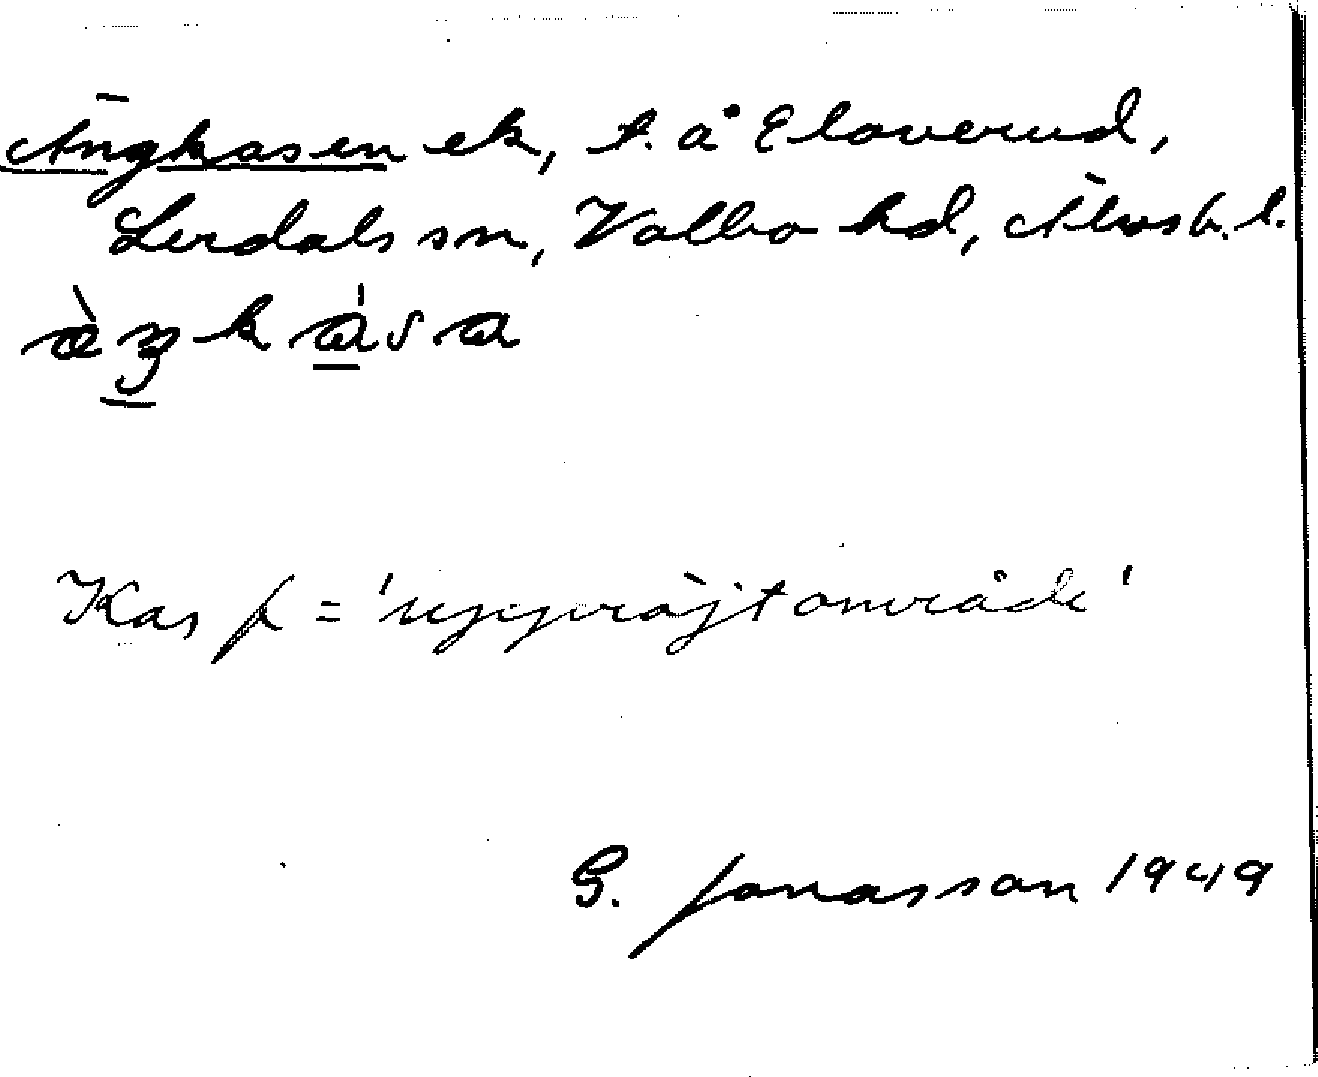 Ängkasen ek, t. å Eloverud,
Lerdals sn, Valbo hd, Älvsb. l.
æ̀ŋkása
Kas f = 'uppröjt område'
G. Jonasson 1949